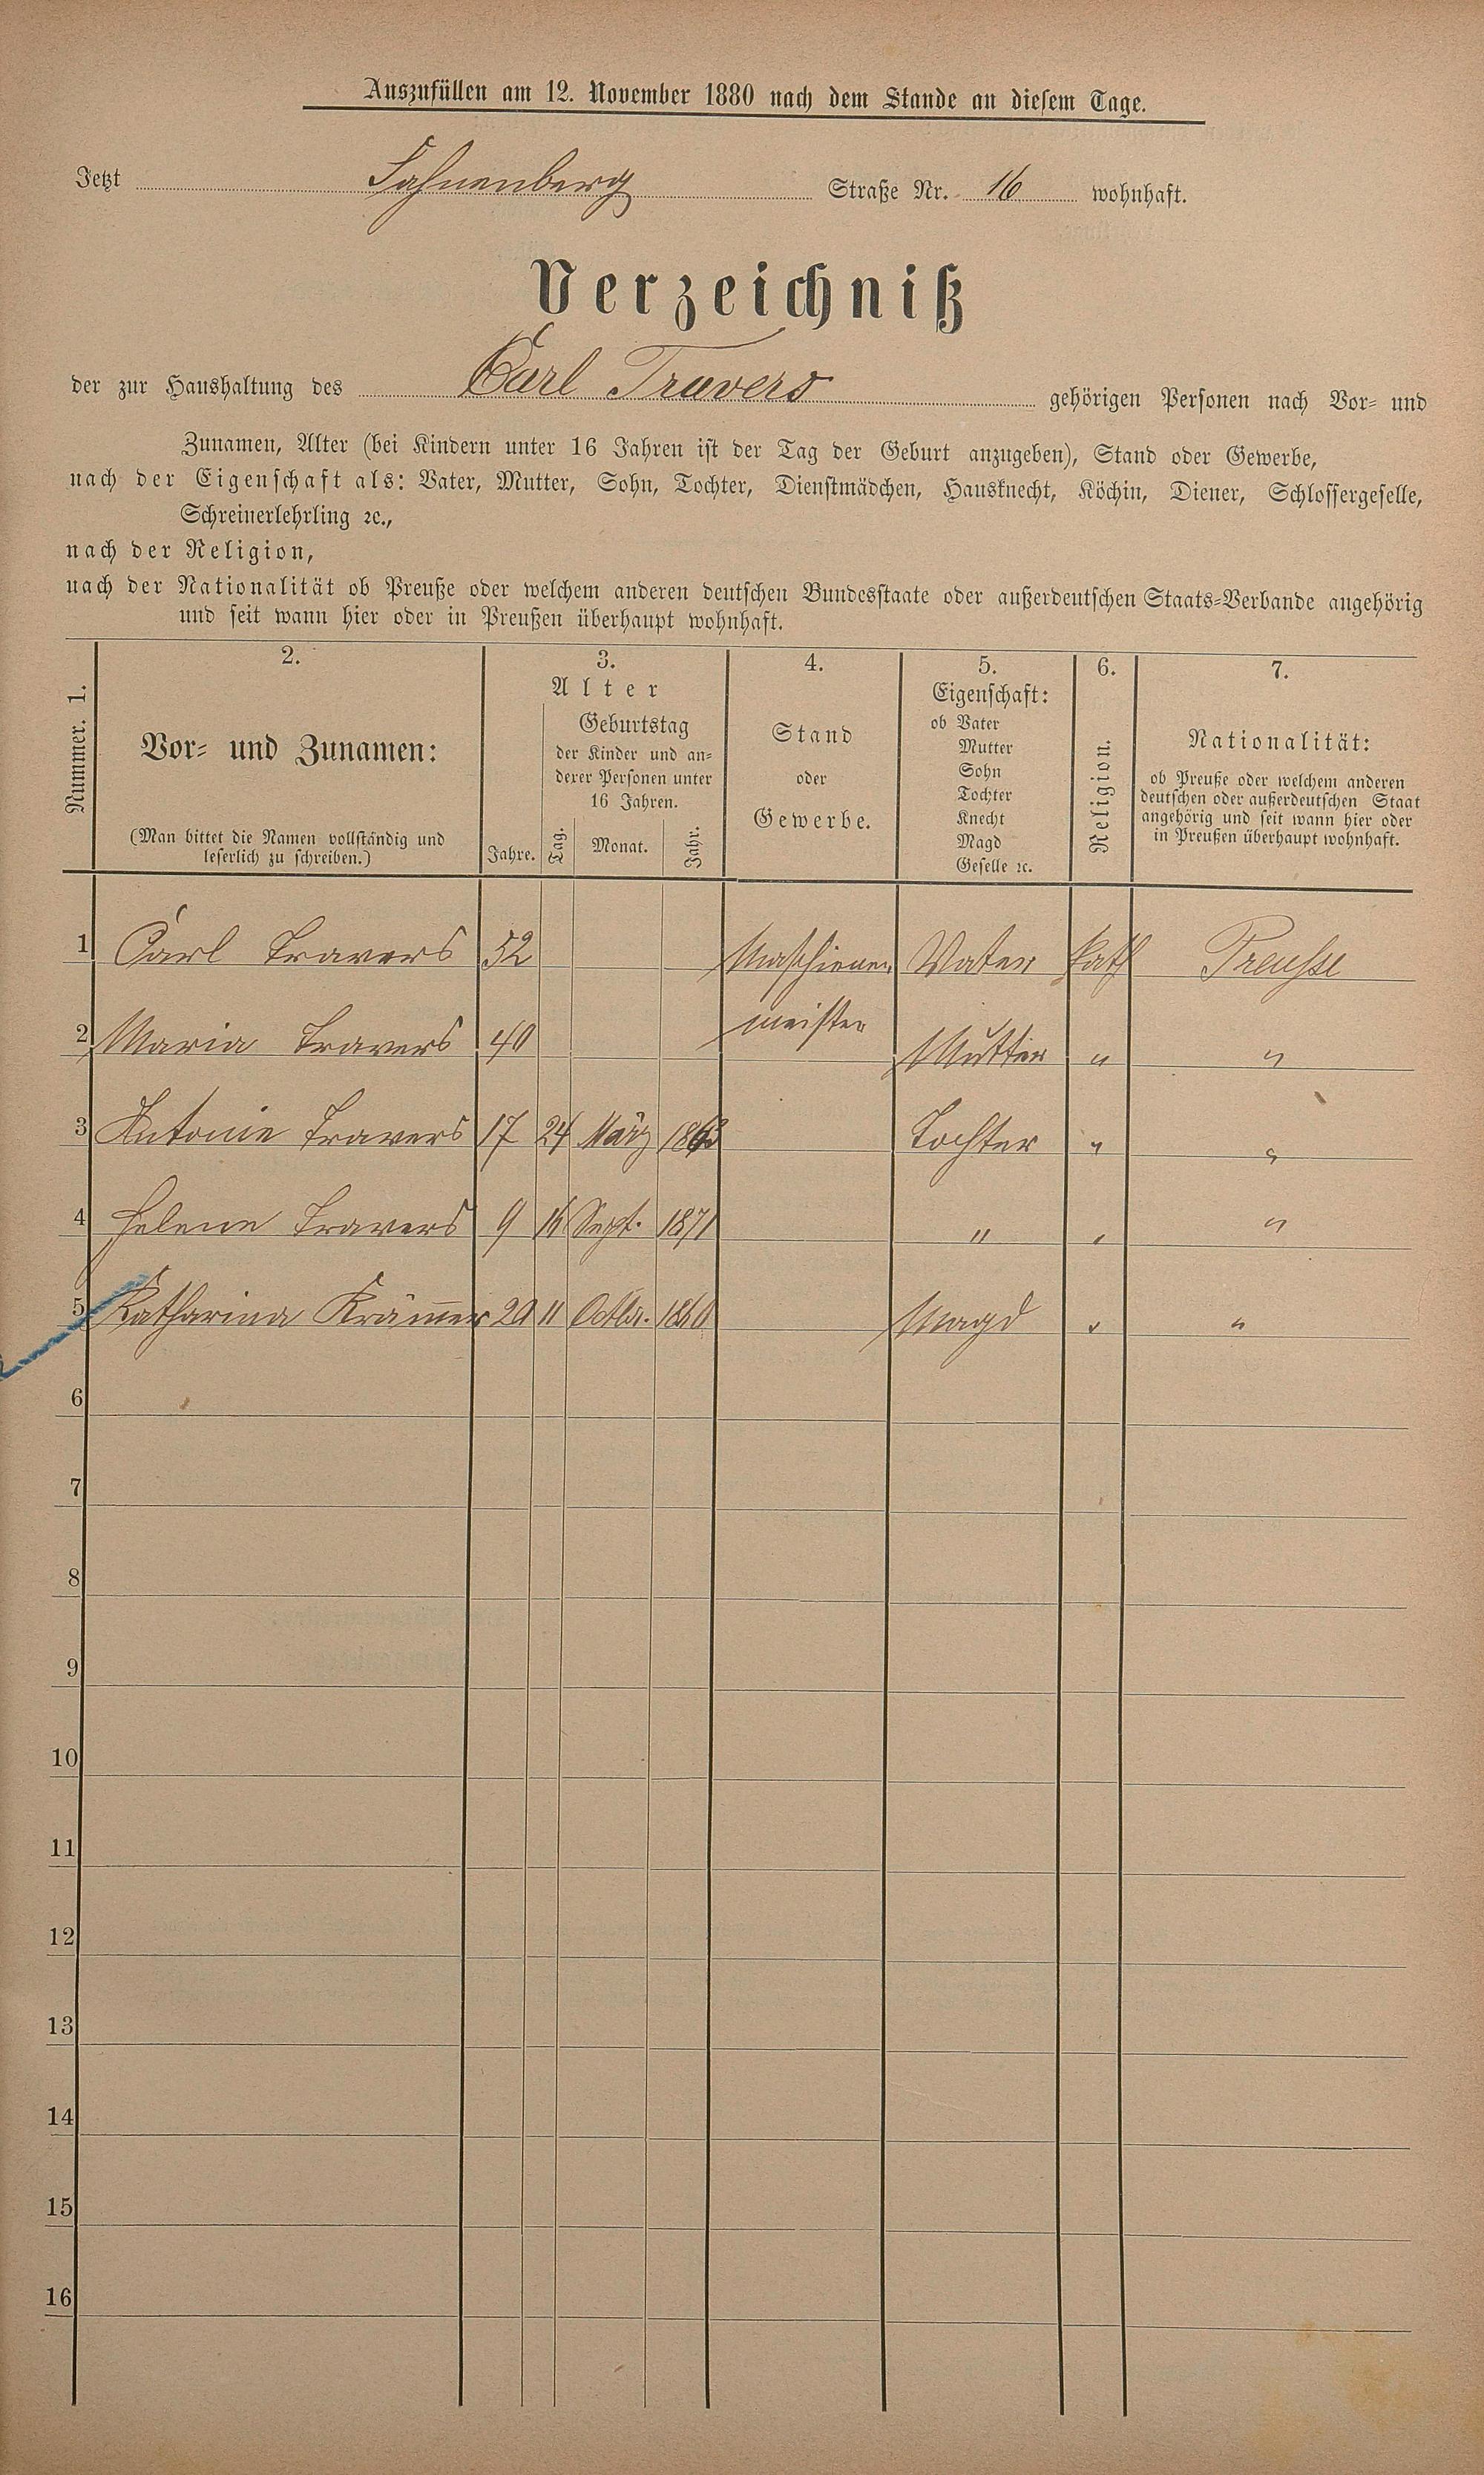 Auszufüllen am 12. November 1880 nach dem Stande an diesem Tage.
Jetzt Hahnenberg Straße Nr. 16 wohnhaft.
Verzeichniß
der zur Haushaltung des Carl Travers gehörigen Personen nach Vor- und
Zunamen, Alter (bei Kindern unter 16 Jahren ist der Tag der Geburt anzugeben), Stand oder Gewerbe,
nach der Eigenschaft als: Vater, Mutter, Sohn, Tochter, Dienstmädchen, Hausknecht, Köchin, Diener, Schlossergeselle,
Schreinerlehrling ꝛc.,
nach der Religion,
nach der Nationalität ob Preuße oder welchem anderen deutschen Bundesstaate oder außerdeutschen Staats-Verbande angehörig
und seit wann hier oder in Preußen überhaupt wohnhaft.
Nummer. 1.
2.
Vor- und Zunamen:
(Man bittet die Namen vollständig und
leserlich zu schreiben.)
3.
Alter
Jahre.
Geburtstag
der Kinder und an-
derer Personen unter
16 Jahren.
Tag. Monat. Jahr.
4.
Stand
oder
Gewerbe.
5.
Eigenschaft:
ob Vater
Mutter
Sohn
Tochter
Knecht
Magd
Geselle ꝛc.
6.
Religion.
7.
Nationalität:
ob Preuße oder welchem anderen
deutschen oder außerdeutschen Staat
angehörig und seit wann hier oder
in Preußen überhaupt wohnhaft.
1 Carl Travers 52 Maschienen Vater kath Preusse
2 Maria Travers 40 meister Mutter " "
3 Antonie Travers 17 24 März 1863 Tochter " "
4 Helene Travers 9 16 Sept. 1871 " " "
5 Katharina Krämer 20 11 Octbr. 1860 Magd " "
6
7
8
9
10
11
12
13
14
15
16